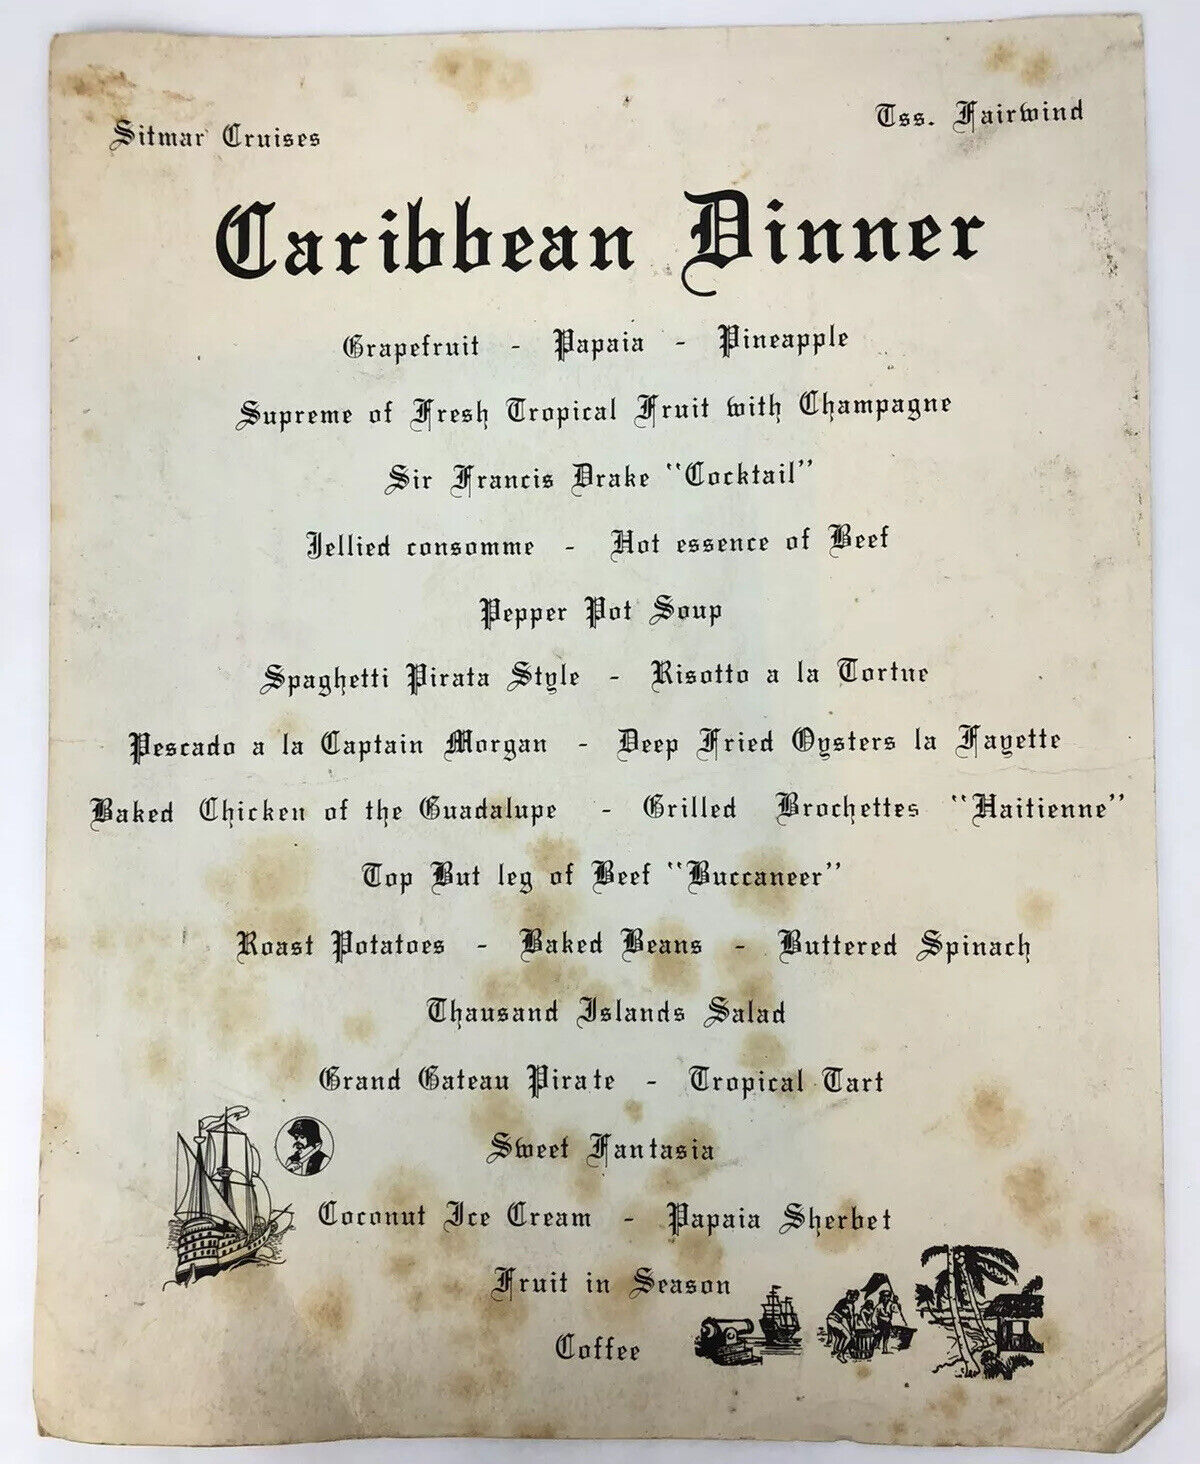 Sitmar Cruises
Tss. Fairwind
Caribbean Dinner
Grapefruit - Papaia - Pineapple
Supreme of Fresh Tropical Fruit with Champagne
Sir Francis Drake "Cocktail"
Jellied consomme - Hot essence of Beef
Pepper Pot Soup
Spaghetti Pirata Style - Risotto a la Tortue
Pescado a la Captain Morgan - Deep Fried Oysters la Fayette
Baked Chicken of the Guadalupe - Grilled Brochettes "Haitienne"
Top But leg of Beef "Buccaneer"
Roast Potatoes - Baked Beans - Buttered Spinach
Thausand Islands Salad
Grand Gateau Pirate - Tropical Tart
Sweet Fantasia
Coconut Ice Cream - Papaia Sherbet
Fruit in Season
Coffee